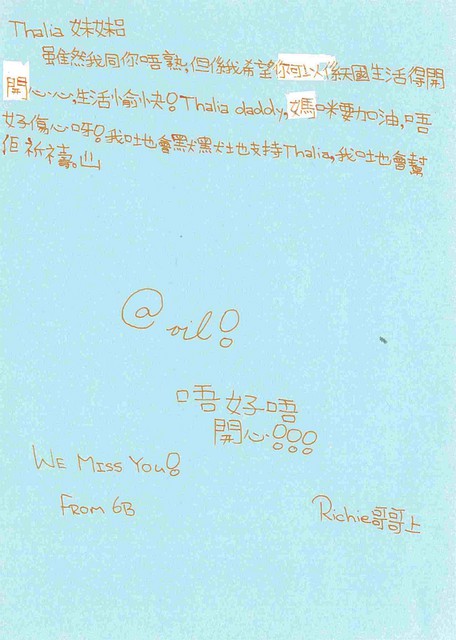 Thalia 妹妹
雖然我同你唔熟,但係我希望你可以係天國生活得開
開心心,生活愉快!Thalia daddy,媽咪要加油,唔
好傷心呀!我哋會默默地支持Thalia,我哋會幫
佢祈禱
@ oil!
唔好唔
開心!!!
WE MISS YOU!
FROM 6B
Richie哥哥上